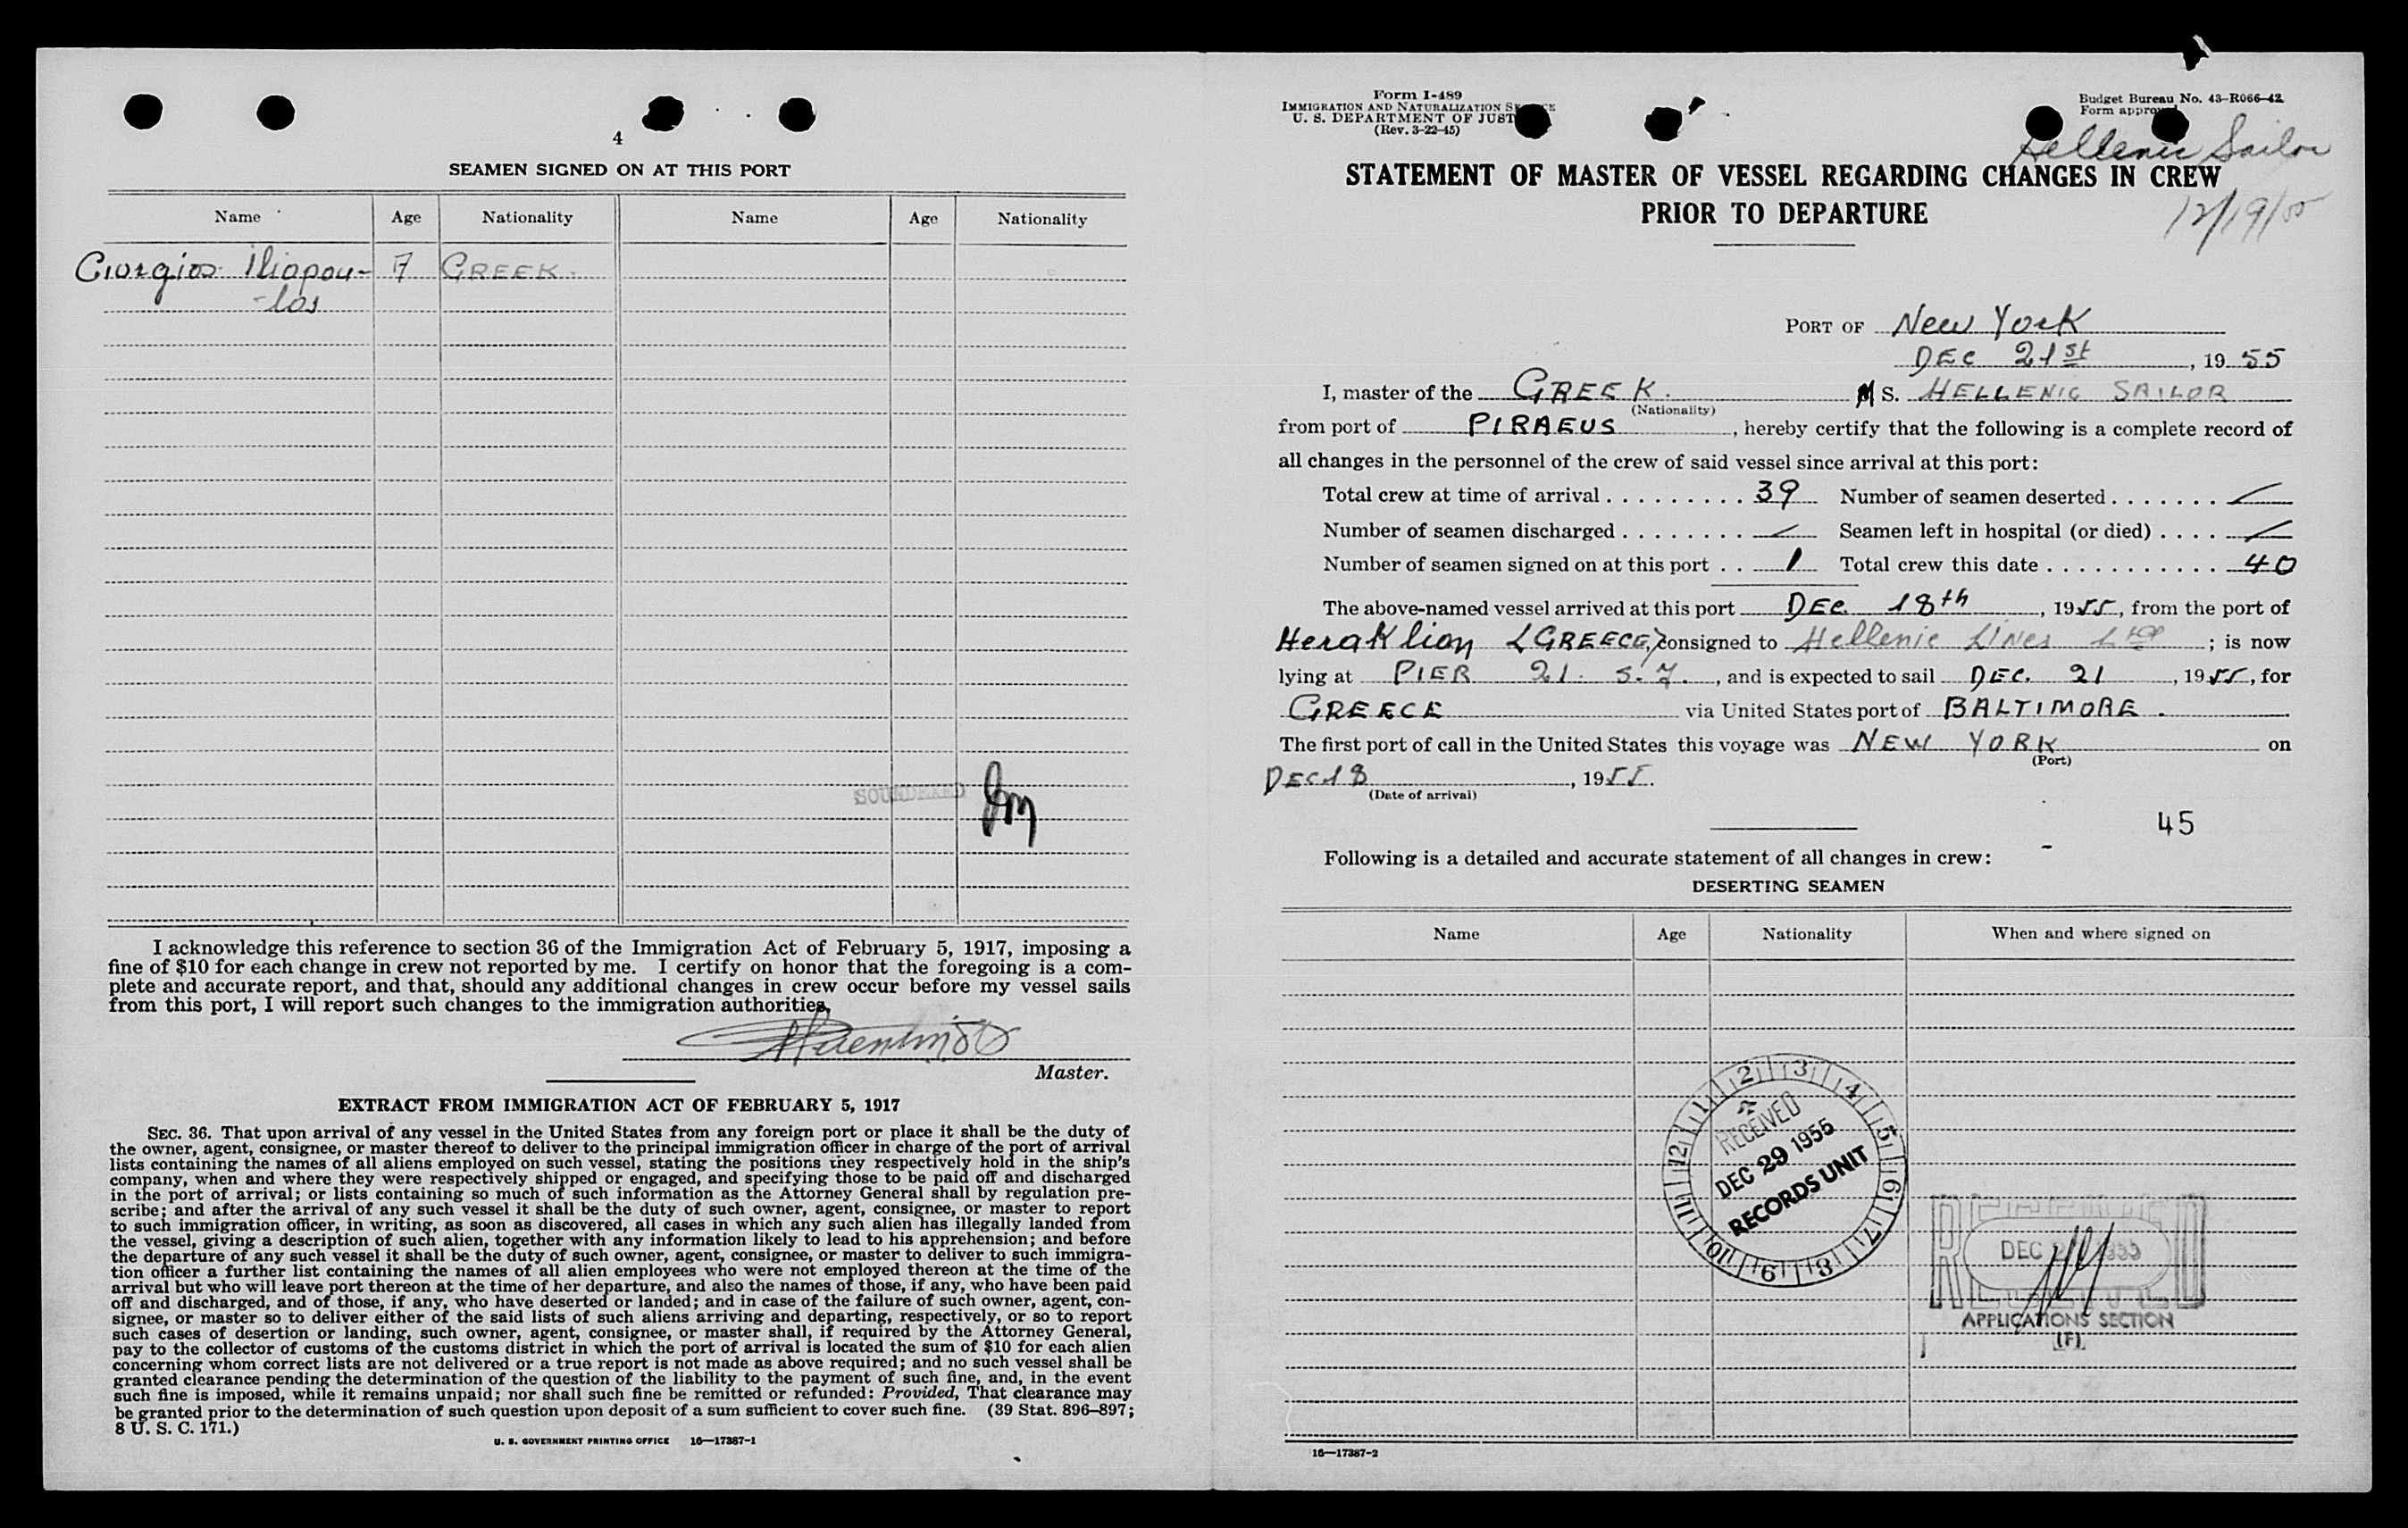 4
SEAMEN SIGNED ON AT THIS PORT
Name Age Nationality Name Age Nationality
Giorgios Iliopou- 7 GREEK.
-los
SOUNDEXED
I acknowledge this reference to section 36 of the Immigration Act of February 5, 1917, imposing a
fine of $10 for each change in crew not reported by me. I certify on honor that the foregoing is a com-
plete and accurate report, and that, should any additional changes in crew occur before my vessel sails
from this port, I will report such changes to the immigration authorities.
Master.
EXTRACT FROM IMMIGRATION ACT OF FEBRUARY 5, 1917
SEC. 36. That upon arrival of any vessel in the United States from any foreign port or place it shall be the duty of
the owner, agent, consignee, or master thereof to deliver to the principal immigration officer in charge of the port of arrival
lists containing the names of all aliens employed on such vessel, stating the positions they respectively hold in the ship's
company, when and where they were respectively shipped or engaged, and specifying those to be paid off and discharged
in the port of arrival; or lists containing so much of such information as the Attorney General shall by regulation pre-
scribe; and after the arrival of any such vessel it shall be the duty of such owner, agent, consignee, or master to report
to such immigration officer, in writing, as soon as discovered, all cases in which any such alien has illegally landed from
the vessel, giving a description of such alien, together with any information likely to lead to his apprehension; and before
the departure of any such vessel it shall be the duty of such owner, agent, consignee, or master to deliver to such immigra-
tion officer a further list containing the names of all alien employees who were not employed thereon at the time of the
arrival but who will leave port thereon at the time of her departure, and also the names of those, if any, who have been paid
off and discharged, and of those, if any, who have deserted or landed; and in case of the failure of such owner, agent, con-
signee, or master so to deliver either of the said lists of such aliens arriving and departing, respectively, or so to report
such cases of desertion or landing, such owner, agent, consignee, or master shall, if required by the Attorney General,
pay to the collector of customs of the customs district in which the port of arrival is located the sum of $10 for each alien
concerning whom correct lists are not delivered or a true report is not made as above required; and no such vessel shall be
granted clearance pending the determination of the question of the liability to the payment of such fine, and, in the event
such fine is imposed, while it remains unpaid; nor shall such fine be remitted or refunded: Provided, That clearance may
be granted prior to the determination of such question upon deposit of a sum sufficient to cover such fine. (39 Stat. 896-897;
8 U. S. C. 171.)
U. S. GOVERNMENT PRINTING OFFICE 16—17387-1
Form I-489
IMMIGRATION AND NATURALIZATION
U. S. DEPARTMENT OF JUST
(Rev. 3-22-45)
Budget Bureau No. 43-R066-42
Form approved
Hellenic Sailor
STATEMENT OF MASTER OF VESSEL REGARDING CHANGES IN CREW
PRIOR TO DEPARTURE
12/19/55
PORT OF New York
DEC 21st, 19 55
I, master of the GREEK. M S. HELLENIC SAILOR
(Nationality)
from port of PIRAEUS, hereby certify that the following is a complete record of
all changes in the personnel of the crew of said vessel since arrival at this port:
Total crew at time of arrival . . . . . . . . . 39 Number of seamen deserted . . . . . . . —
Number of seamen discharged . . . . . . . . — Seamen left in hospital (or died) . . . . —
Number of seamen signed on at this port . . 1 Total crew this date . . . . . . . . . . . . 40
The above-named vessel arrived at this port DEC. 18th, 1955, from the port of
Heraklion (GREECE) consigned to Hellenic Lines Ltd; is now
lying at PIER 21. S.I., and is expected to sail DEC. 21, 1955, for
GREECE via United States port of BALTIMORE.
The first port of call in the United States this voyage was NEW YORK on
(Port)
DEC 18, 1955.
(Date of arrival)
45
Following is a detailed and accurate statement of all changes in crew:
DESERTING SEAMEN
Name Age Nationality When and where signed on
1 2 3 4 5 6 7 8 9 10 11 12
RECEIVED
DEC 29 1955
RECORDS UNIT
RECEIVED
DEC 1955
APPLICATIONS SECTION
(F)
16—17387-2